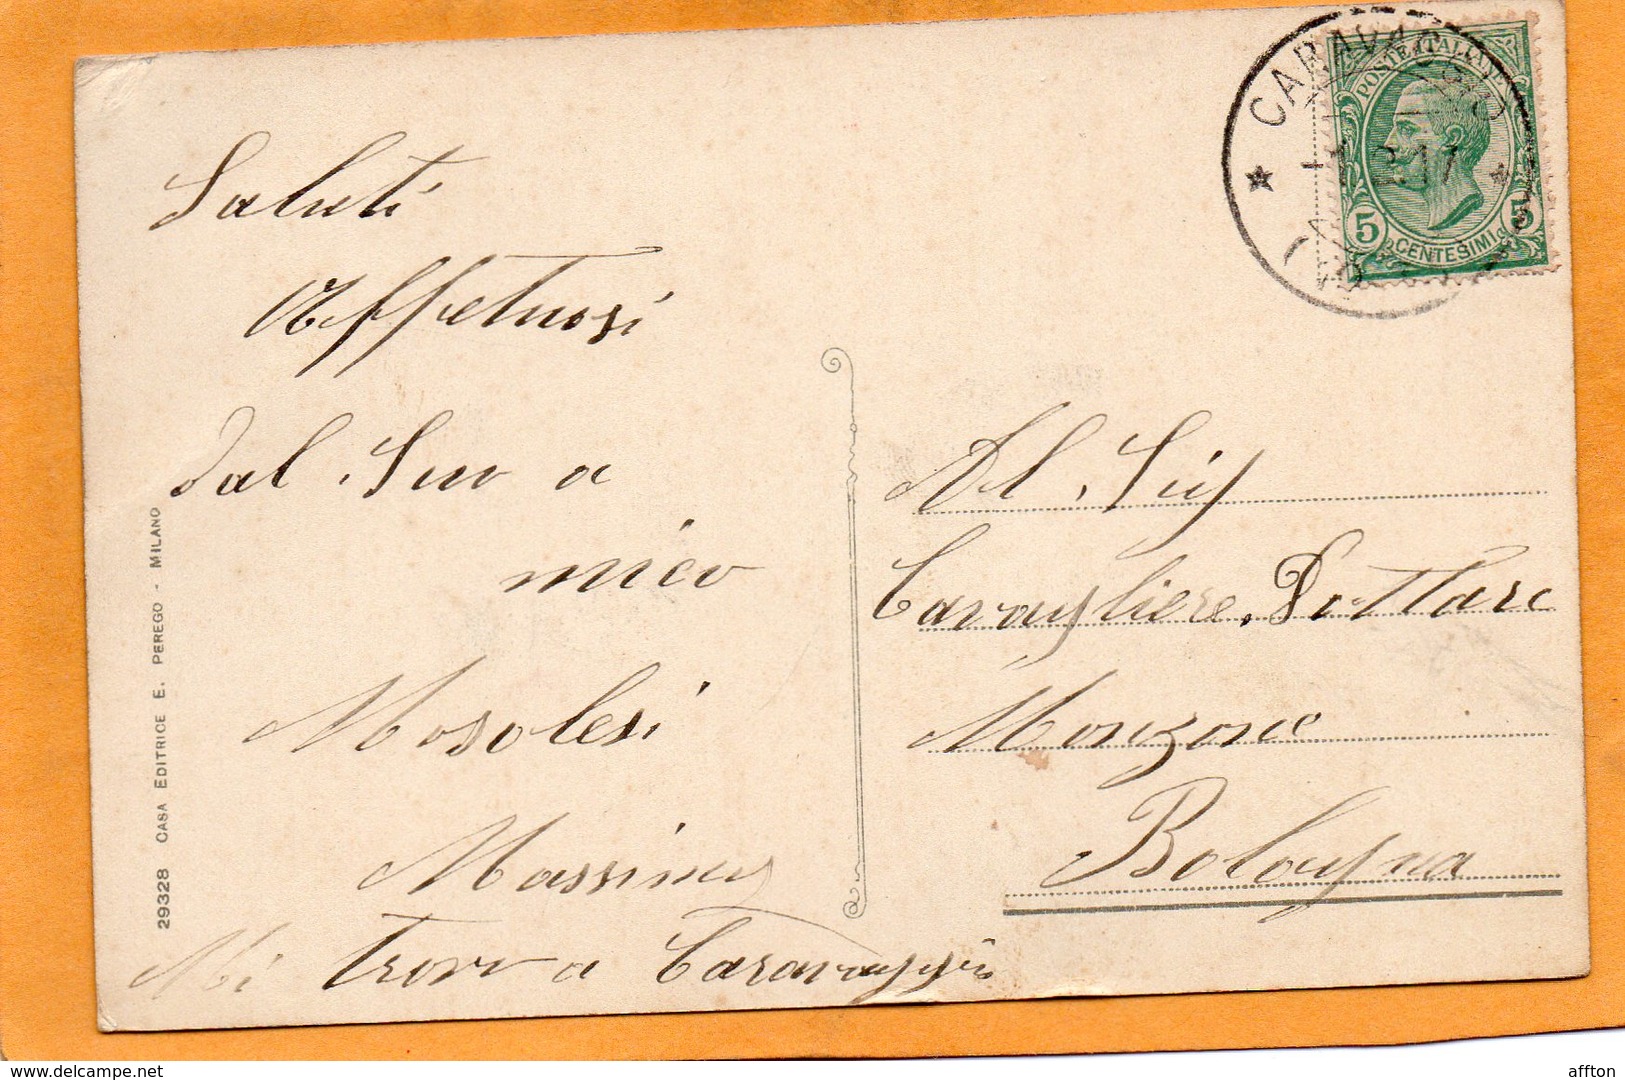 Saluti
Affetuosi
dal Suo a
mico
Mosolesi
Massimo
Mi trovo a Caravaggio
29328 CASA EDITRICE E. PEREGO - MILANO
CARAVAGGIO
POSTE ITALIANE
5 CENTESIMI 5
Al Sig
Cavagliere. Dottare
Monzone
Bologna
delcampe.net
affton